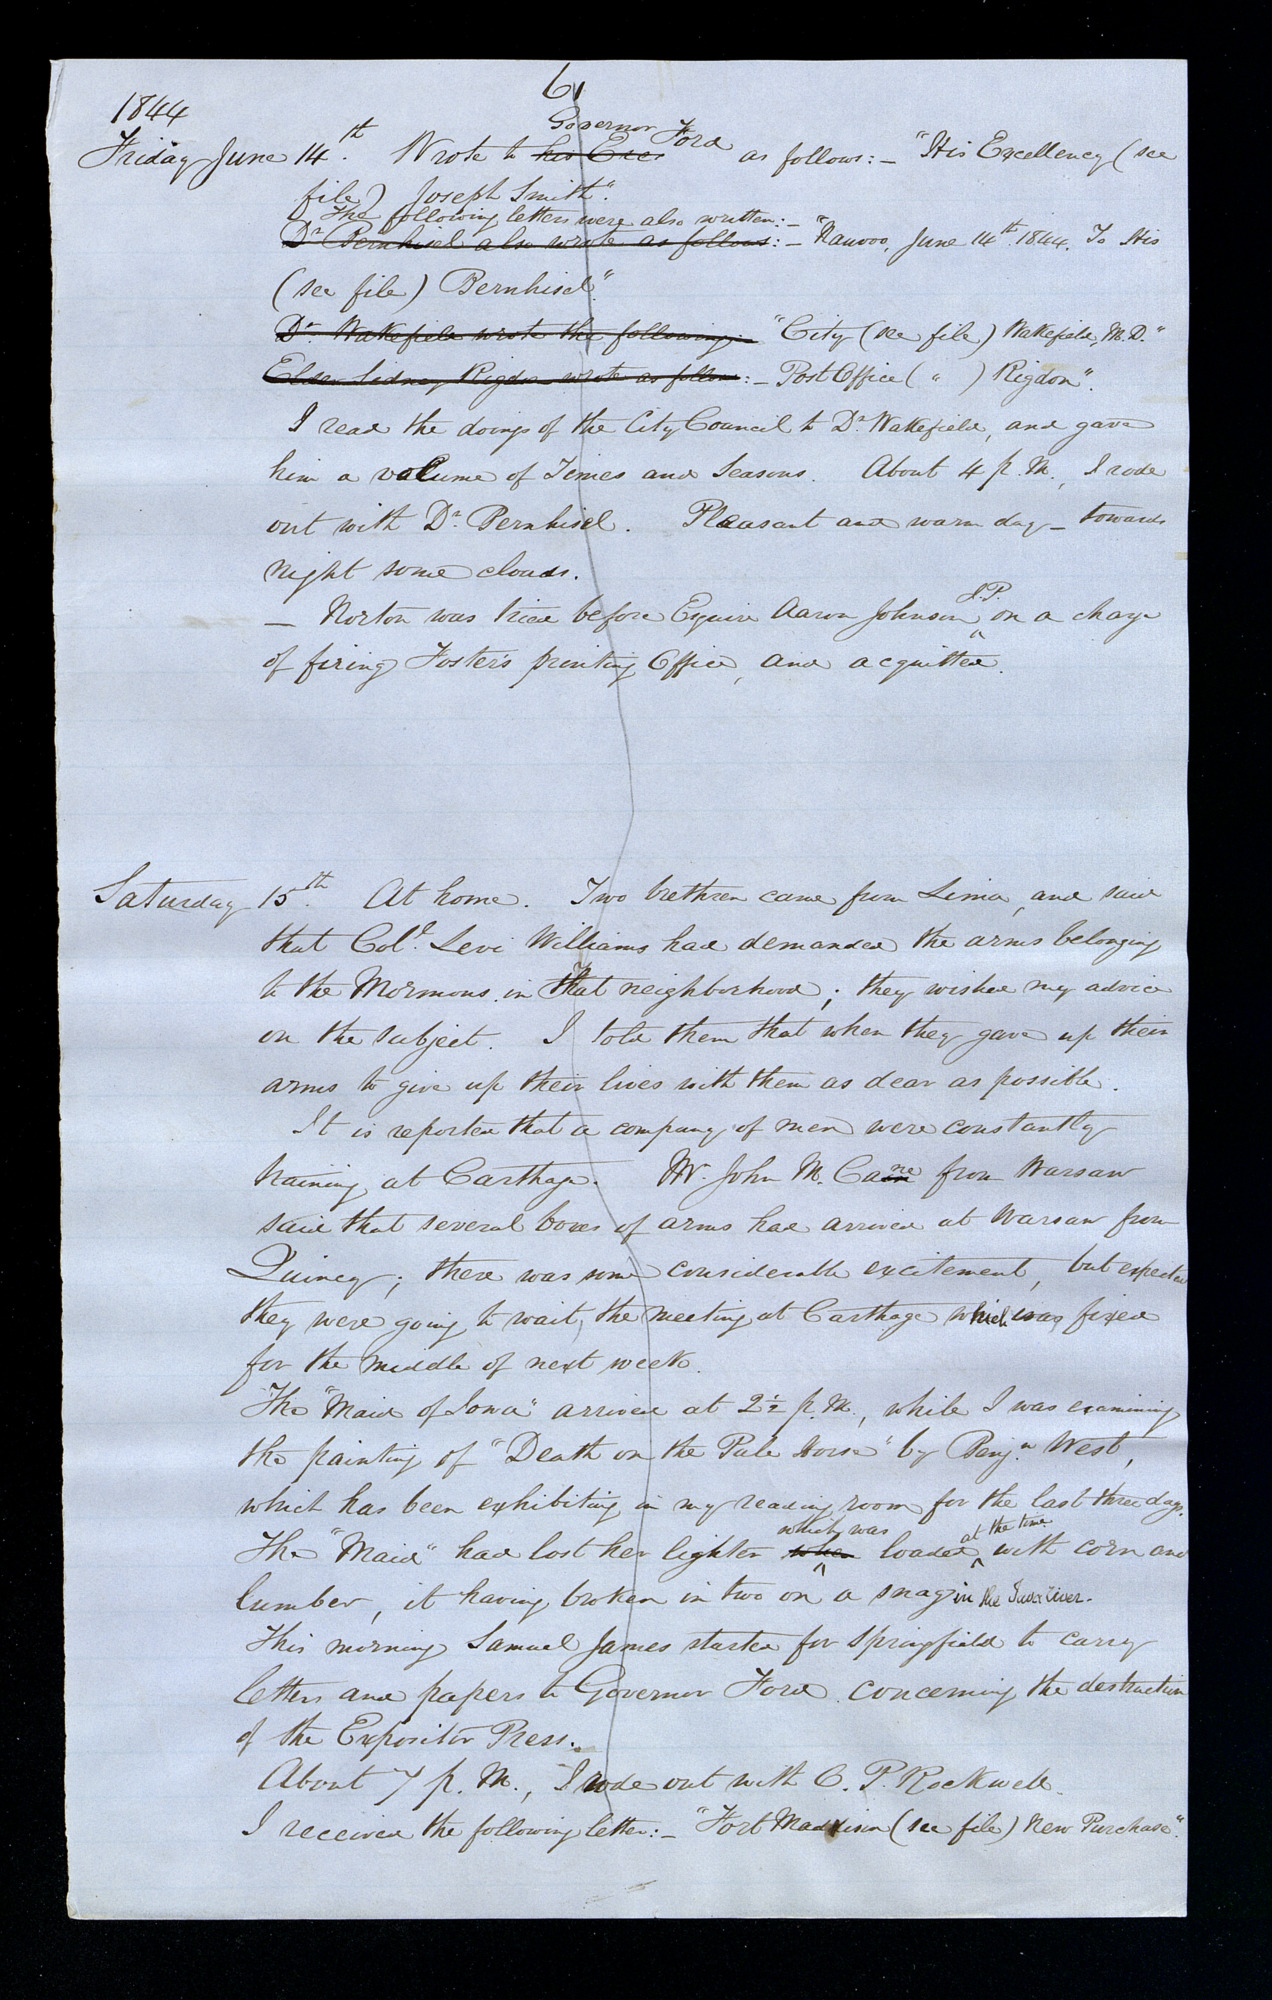 61
1844
Governor Ford
Friday June 14th. Wrote to his Exce as follows:— "His Excellency (see
file) Joseph Smith".
The following letters were also written:—
Dr. Bernhisel also wrote as follows:— "Nauvoo, June 14th. 1844. To His
(see file) Bernhisel."
Dr. Wakefield wrote the following:— "City (see file) Wakefield, M.D."
Elder Sidney Rigdon wrote as follows:— Post Office ( " ) Rigdon".
I read the doings of the City Council to Dr. Wakefield, and gave
him a volume of Times and Seasons. About 4 p. M., I rode
out with Dr. Bernhisel. Pleasant and warm day — towards
night some clouds.
J.P.
— Norton was tried before Esquire Aaron Johnson ^ on a charge
of firing Foster's printing Office, and acquitted.
Saturday 15th. At home. Two brethren came from Lima, and said
that Coll. Levi Williams had demanded the arms belonging
to the Mormons in that neighborhood; they wished my advice
on the subject. I told them that when they gave up their
arms to give up their lives with them as dear as possible.
It is reported that a company of men were constantly
training at Carthage. Mr. John M. Cane from Warsaw
said that several boxes of arms had arrived at Warsaw from
Quincy; there was some considerable excitement, but expected
they were going to wait, the meeting at Carthage which was fixed
for the middle of next week.
The "Maid of Iowa" arrived at 2½ p. M., while I was examining
the painting of "Death on the Pale Horse" by Benjn. West,
which has been exhibiting in my reading room for the last three days.
which was at the time
The "Maid" had lost her lighter when ^ loaded ^ with corn and
lumber, it having broken in two on a snag in the River.
This morning Samuel James started for Springfield to carry
letters and papers to Governor Ford concerning the destruction
of the Expositor Press.
About 7 p. M., I rode out with O. P. Rockwell.
I received the following letter:— "Fort Maddison (see file) New Purchase".